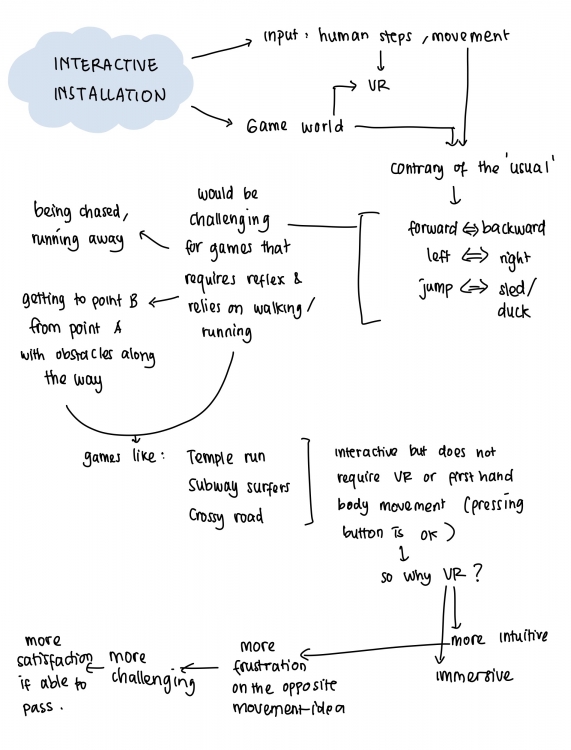 INTERACTIVE
INSTALLATION
input : human steps , movement
VR
Game world
contrary of the 'usual'
forward ⇔ backward
left ⇔ right
jump ⇔ sled/
duck
would be
challenging
for games that
requires reflex &
relies on walking/
running
being chased,
running away
getting to point B
from point A
with obstacles along
the way
games like :
Temple run
Subway surfers
Crossy road
interactive but does not
require VR or first hand
body movement (pressing
button is ok)
so why VR ?
more intuitive
immersive
more
frustration
on the opposite
movement-idea
more
challenging
more
satisfaction
if able to
pass .